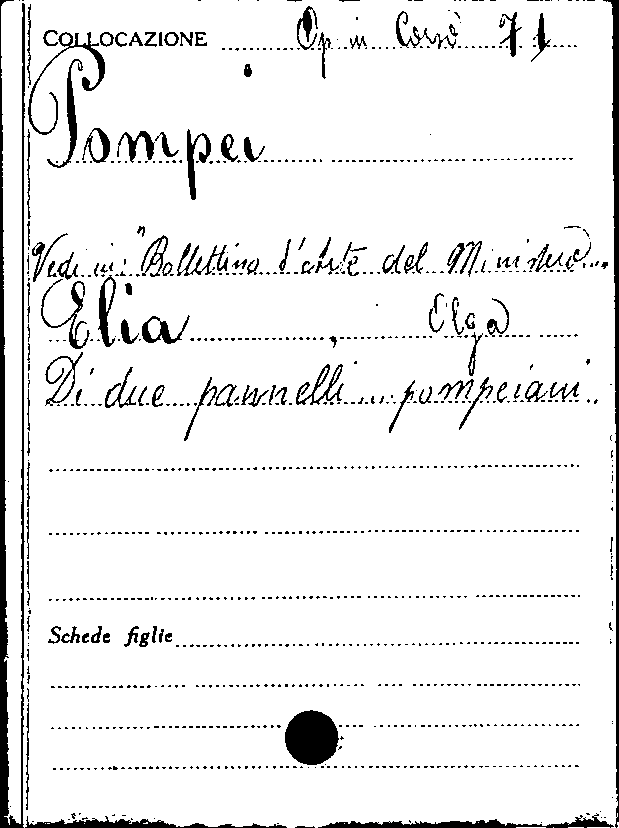 COLLOCAZIONE Op in Corso 71
Pompei
Vedi in: "Bollettino d'arte del Ministero...
Elia, Olga
Di due pannelli... pompeiani..
Schede figlie